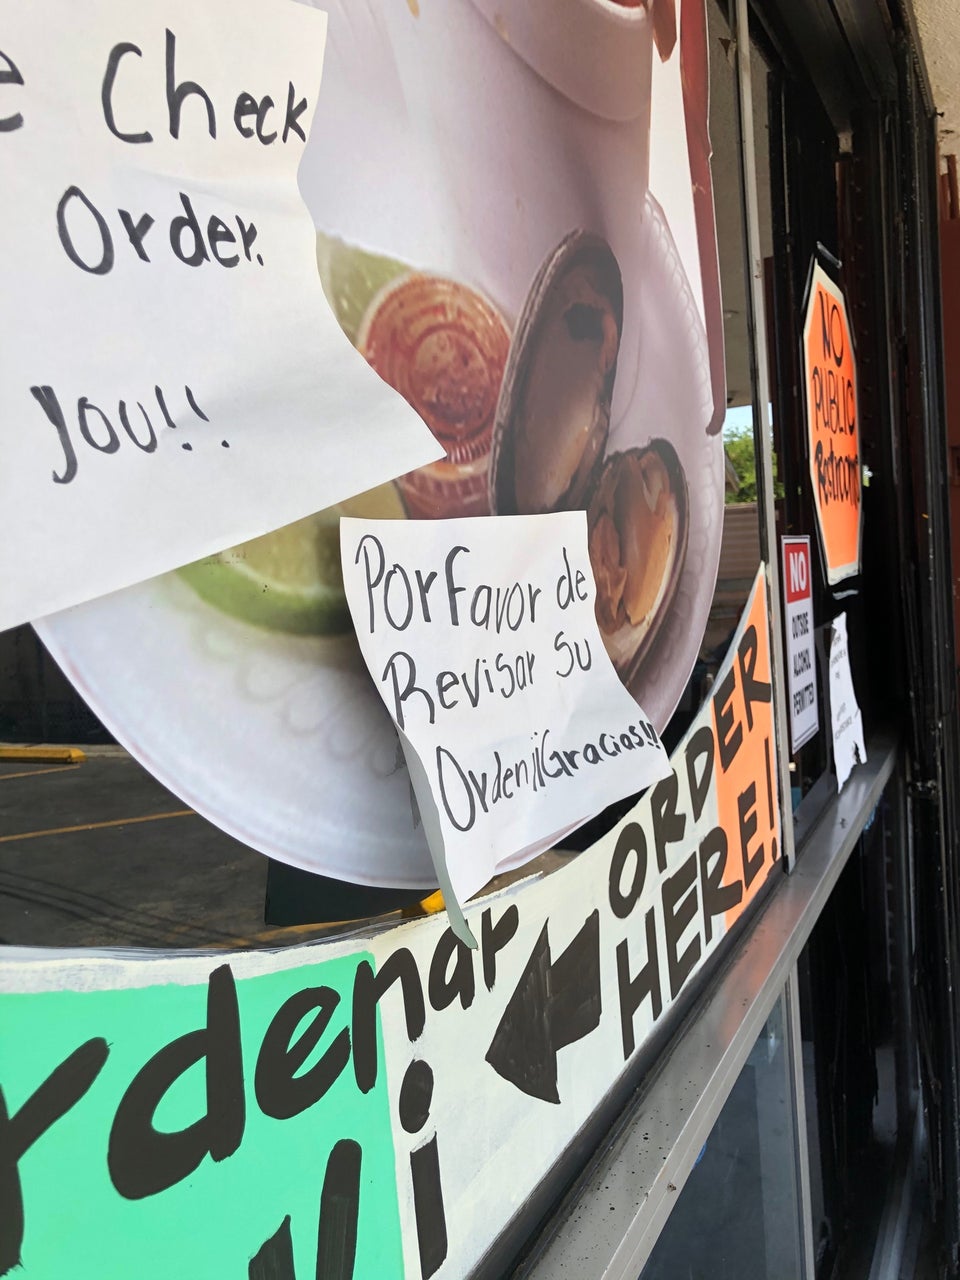 e Check
Order.
you!!
Por Favor de
Revisar su
Orden¡¡Gracias!!
ORDER
HERE!
rdenar
NO
PUBLIC
Restrooms
NO
OUTSIDE
ALCOHOL
PERMITTED